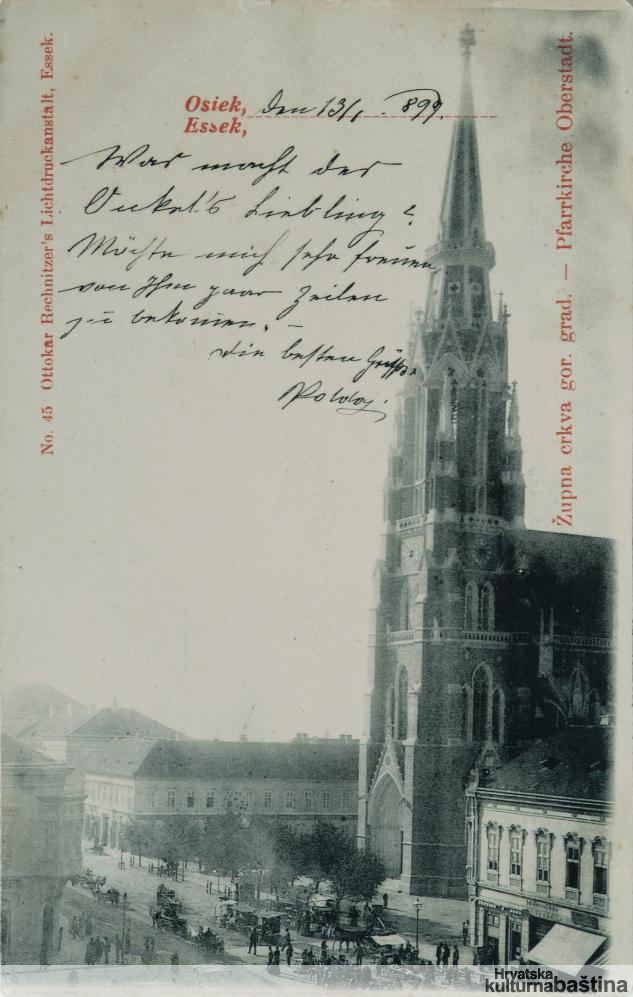 No. 45 Ottokar Rechnitzer's Lichtdruckanstalt, Essek.
Osiek, den 13/1. 899.
Essek,
Was macht der
Onkel's Liebling?
Möchte mich sehr freuen
von Ihm paar Zeilen
zu bekommen. –
Die besten Grüsse
Župna crkva gor. grad. — Pfarrkirche Oberstadt.
Hrvatska
kulturnabaština